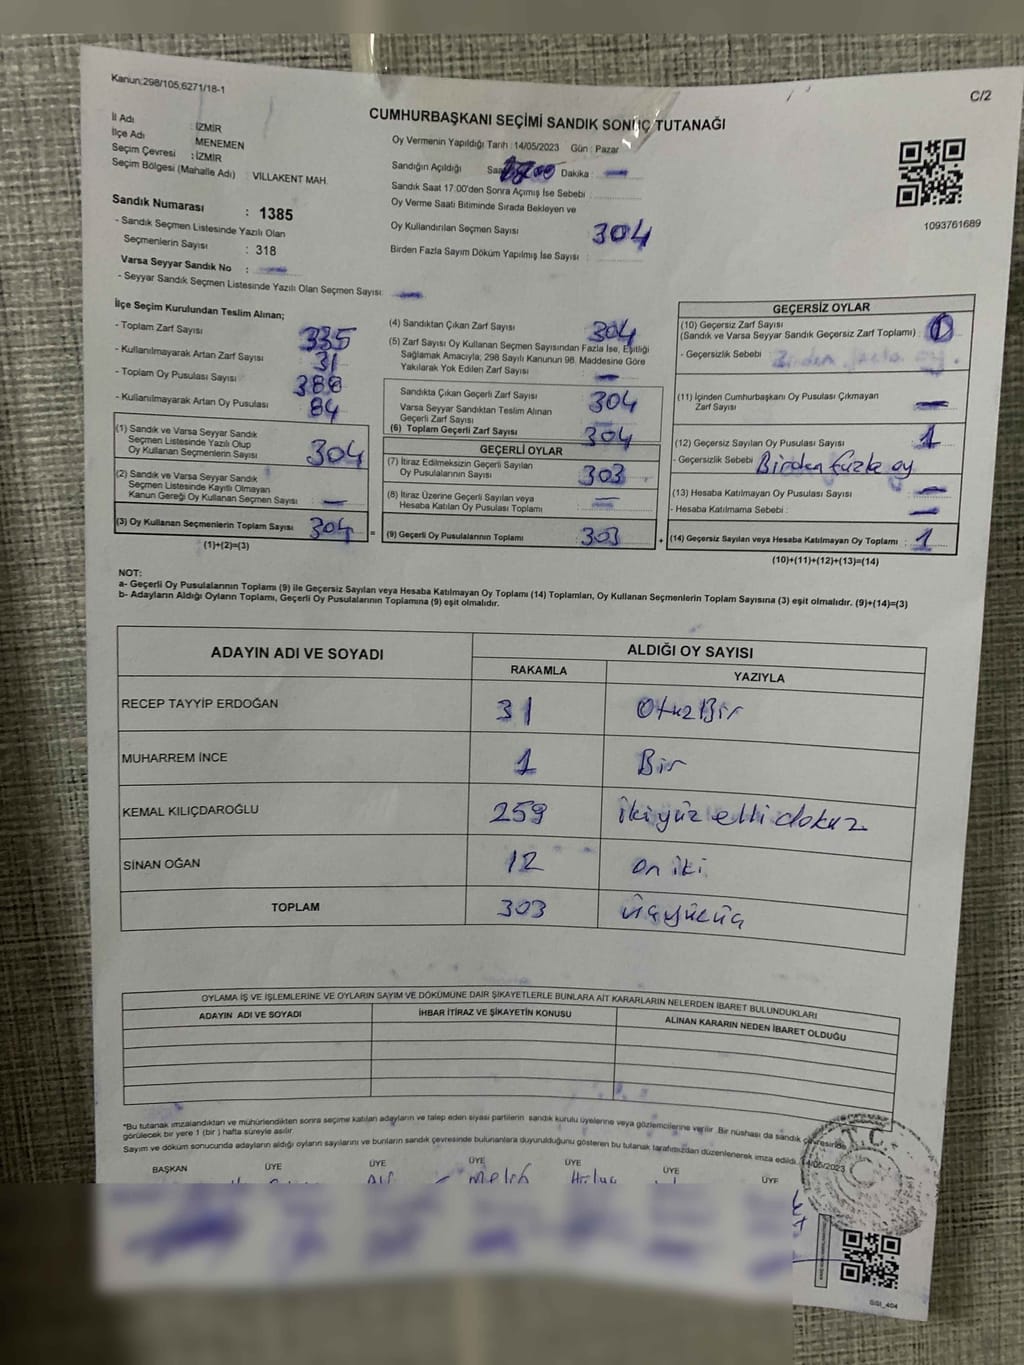 Kanun:298/105,6271/18-1
C/2
CUMHURBAŞKANI SEÇİMİ SANDIK SONUÇ TUTANAĞI
İl Adı : İZMİR
İlçe Adı MENEMEN
Seçim Çevresi : İZMİR
Seçim Bölgesi (Mahalle Adı) : VILLAKENT MAH.
Sandık Numarası : 1385
- Sandık Seçmen Listesinde Yazılı Olan
Seçmenlerin Sayısı : 318
Varsa Seyyar Sandık No :
- Seyyar Sandık Seçmen Listesinde Yazılı Olan Seçmen Sayısı:
Oy Vermenin Yapıldığı Tarih : 14/05/2023 Gün : Pazar
Sandığın Açıldığı Dakika :
Sandık Saat 17.00'den Sonra Açımış İse Sebebi :
Oy Verme Saati Bitiminde Sırada Bekleyen ve
Oy Kullandırılan Seçmen Sayısı 304
Birden Fazla Sayım Döküm Yapılmış İse Sayısı :
1093761689
İlçe Seçim Kurulundan Teslim Alınan;
- Toplam Zarf Sayısı 335
- Kullanılmayarak Artan Zarf Sayısı : 31
- Toplam Oy Pusulası Sayısı 388
- Kullanılmayarak Artan Oy Pusulası 84
(1) Sandık ve Varsa Seyyar Sandık
Seçmen Listesinde Yazılı Olup
Oy Kullanan Seçmenlerin Sayısı : 304
(2) Sandık ve Varsa Seyyar Sandık
Seçmen Listesinde Kayıtlı Olmayan
Kanun Gereği Oy Kullanan Seçmen Sayısı :
(3) Oy Kullanan Seçmenlerin Toplam Sayısı : 304 =
(1)+(2)=(3)
(4) Sandıktan Çıkan Zarf Sayısı : 304
(5) Zarf Sayısı Oy Kullanan Seçmen Sayısından Fazla İse, Eşitliği
Sağlamak Amacıyla; 298 Sayılı Kanunun 98. Maddesine Göre
Yakılarak Yok Edilen Zarf Sayısı :
Sandıkta Çıkan Geçerli Zarf Sayısı : 304
Varsa Seyyar Sandıktan Teslim Alınan
Geçerli Zarf Sayısı
(6) Toplam Geçerli Zarf Sayısı : 304
GEÇERLİ OYLAR
(7) İtiraz Edilmeksizin Geçerli Sayılan
Oy Pusulalarının Sayısı : 303
(8) İtiraz Üzerine Geçerli Sayılan veya
Hesaba Katılan Oy Pusulası Toplamı :
(9) Geçerli Oy Pusulalarının Toplamı : 303 +
GEÇERSİZ OYLAR
(10) Geçersiz Zarf Sayısı
(Sandık ve Varsa Seyyar Sandık Geçersiz Zarf Toplamı) :
- Geçersizlik Sebebi : Birden fazla oy
(11) İçinden Cumhurbaşkanı Oy Pusulası Çıkmayan
Zarf Sayısı
(12) Geçersiz Sayılan Oy Pusulası Sayısı : 1
- Geçersizlik Sebebi : Birden fazla oy
(13) Hesaba Katılmayan Oy Pusulası Sayısı :
- Hesaba Katılmama Sebebi :
(14) Geçersiz Sayılan veya Hesaba Katılmayan Oy Toplamı : 1
(10)+(11)+(12)+(13)=(14)
NOT:
a- Geçerli Oy Pusulalarının Toplamı (9) ile Geçersiz Sayılan veya Hesaba Katılmayan Oy Toplamı (14) Toplamları, Oy Kullanan Seçmenlerin Toplam Sayısına (3) eşit olmalıdır. (9)+(14)=(3)
b- Adayların Aldığı Oyların Toplamı, Geçerli Oy Pusulalarının Toplamına (9) eşit olmalıdır.
ADAYIN ADI VE SOYADI
ALDIĞI OY SAYISI
RAKAMLA YAZIYLA
RECEP TAYYİP ERDOĞAN 31 OtuzBir
MUHARREM İNCE 1 Bir
KEMAL KILIÇDAROĞLU 259 iki yüz elli dokuz
SİNAN OĞAN 12 on iki
TOPLAM 303 üçyüzüç
OYLAMA İŞ VE İŞLEMLERİNE VE OYLARIN SAYIM VE DÖKÜMÜNE DAİR ŞİKAYETLERLE BUNLARA AİT KARARLARIN NELERDEN İBARET BULUNDUKLARI
ADAYIN ADI VE SOYADI İHBAR İTİRAZ VE ŞİKAYETİN KONUSU ALINAN KARARIN NEDEN İBARET OLDUĞU
*Bu tutanak imzalandıktan ve mühürlendikten sonra seçime katılan adayların ve talep eden siyasi partilerin sandık kurulu üyelerine veya gözlemcilerine verilir. Bir nüshası da sandık çevresinde
görülecek bir yere 1 (bir) hafta süreyle asılır.
Sayım ve döküm sonucunda adayların aldığı oyların sayılarını ve bunların sandık çevresinde bulunanlara duyurulduğunu gösteren bu tutanak tarafımızdan düzenlenerek imza edildi. 14/05/2023
BAŞKAN ÜYE ÜYE ÜYE ÜYE ÜYE ÜYE
T.C.
GSI_404